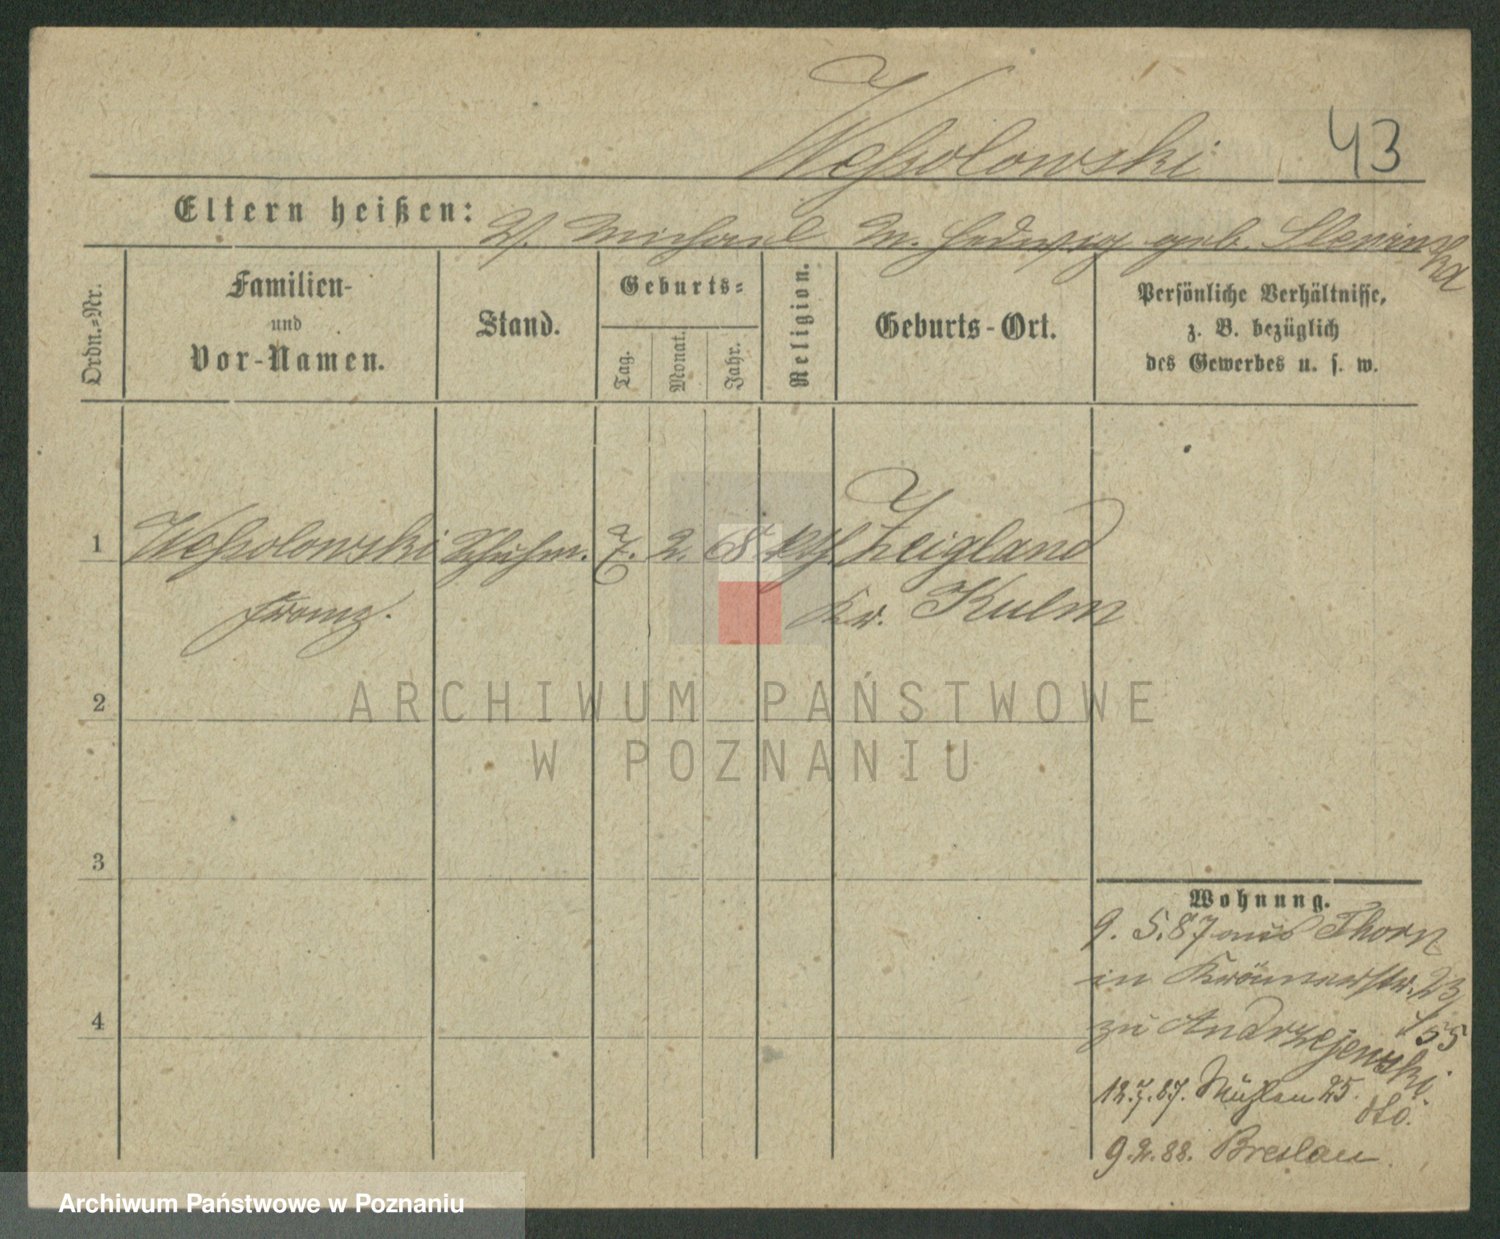 Weßolowski 43
Eltern heißen: V. Michael M. Hedwig geb.
Ordn.-Nr. Familien- und Vor-Namen. Stand. Geburts- Tag. Monat. Jahr. Religion. Geburts-Ort. Persönliche Verhältnisse, z. B. bezüglich des Gewerbes u. s. w.
1 Weßolowski Schuhm. 7. 2. 68 kth. Zeigland
Franz. Kr. Kulm
2
3
4
Wohnung.
9. 5. 87 aus Thorn
in Krämerstr. 23
zu Andrzejewski
12. 7. 87. Mühlen 25.
9. 2. 88. Breslau.
ARCHIWUM PAŃSTWOWE
W POZNANIU
Archiwum Państwowe w Poznaniu